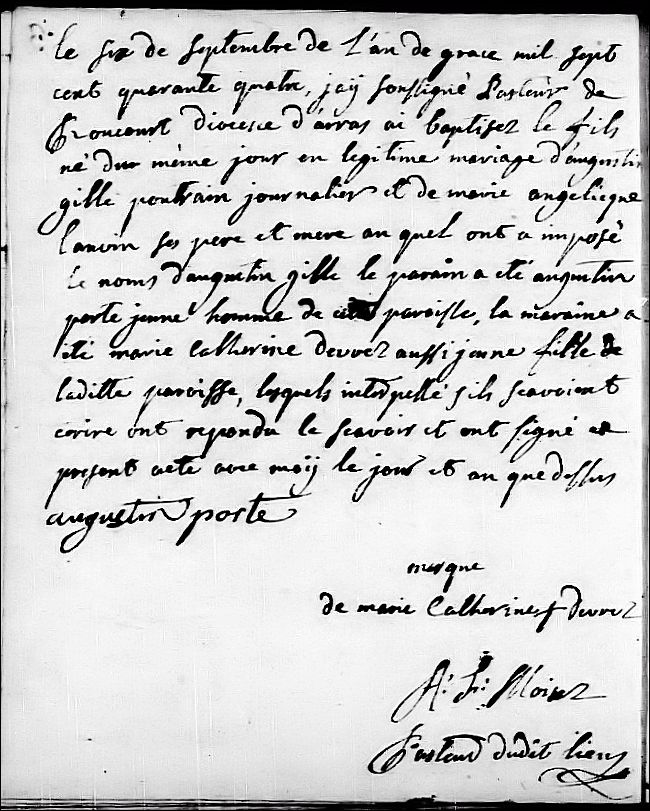 le six de septembre de l'an de grace mil sept
cent quarante quatre, jay soussigné Pasteur de
froncourt diocese d'arras ai baptisez le fils
né du même jour en legitime mariage d'augustin
gille poutrain journalier et de marie angelicque
lanvin ses pere et mere au quel ont a imposé
le noms d'augustin gille le parain a eté augustin
porte jeune homme de cette paroisse, la maraine a
eté marie Catherine Devrez aussi jeune fille de
laditte paroisse, lesquels interpellé s'ils scavoient
ecrire ont repondu le scavoir et ont signé ce
present acte avec moÿ le jour et an que dessus
augustin porte
marque
de marie Catherine + devrez
Pasteur dudit lieu